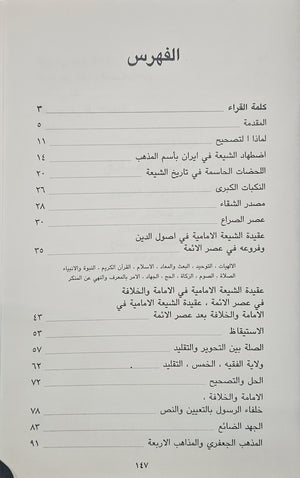 الفهرس
كلمة القراء ٣
المقدمة ٥
لماذا ا لتصحيح ١١
اضطهاد الشيعة في ايران بأسم المذهب ١٤
اللحضات الحاسمة في تاريخ الشيعة ٢٠
النكبات الكبرى ٢٦
مصدر الشقاء ٢٨
عصر الصراع ٣٠
عقيدة الشيعة الامامية في اصول الدين
وفروعه في عصر الائمة ٣٥
الالهيات ، التوحيد ، البعث والمعاد ، الاسلام ، القرآن الكريم ، النبوة والانبياء
الصلاة ، الصوم ، الزكاة ، الحج ، الجهاد ، الامر بالمعروف والنهي عن المنكر
عقيدة الشيعة الامامية في الامامة والخلافة
في عصر الائمة ، عقيدة الشيعة الامامية في
الامامة والخلافة بعد عصر الائمة ٤٣
الاستيقاظ ٥٣
الصلة بين التحوير والتقليد ٥٧
ولاية الفقيه ، الخمس ، التقليد ٦٢
الحل والتصحيح ٧٢
الامامة والخلافة ،
خلفاء الرسول بالتعيين والنص ٧٨
الجهد الضائع ٨٣
المذهب الجعفري والمذاهب الاربعة ٩١
١٤٧